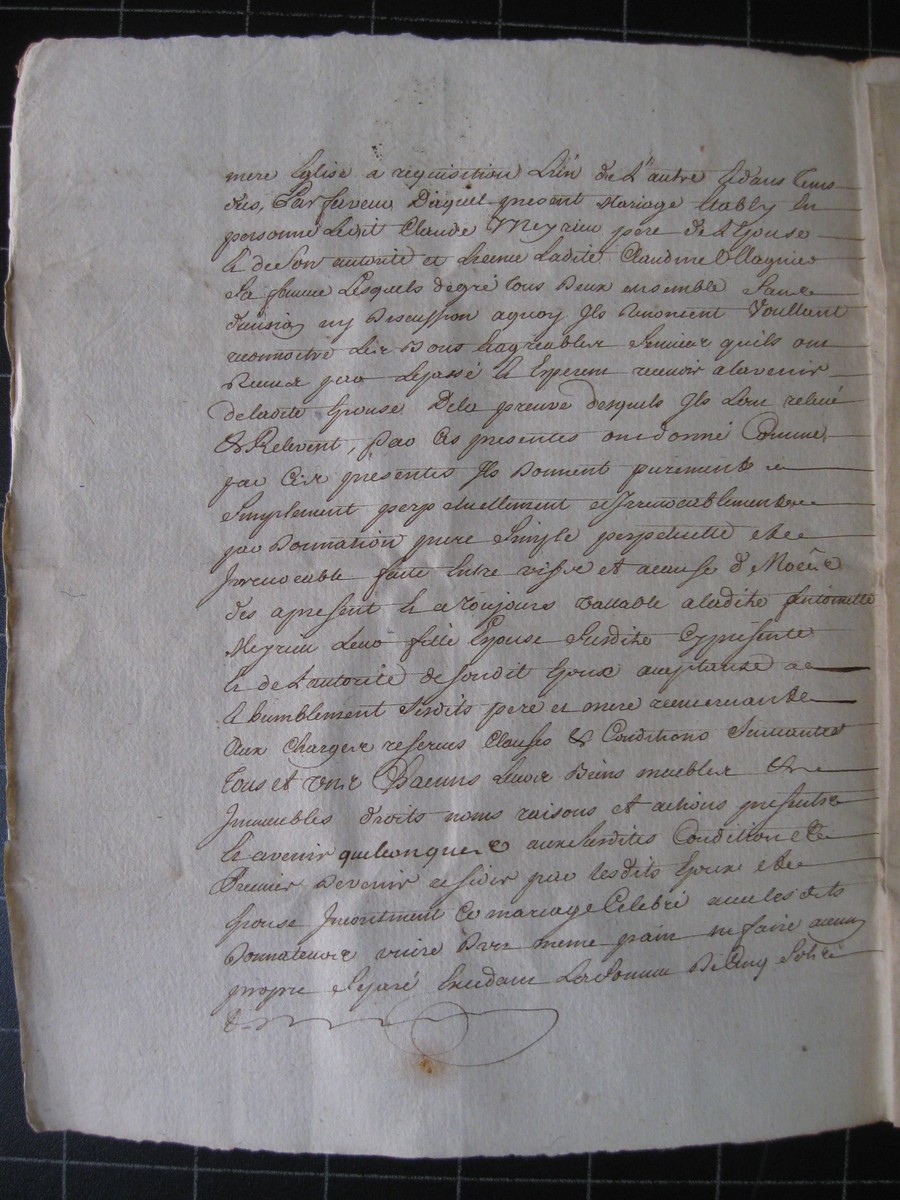 mere Eglise a requisition L'ún de L'autre & dans tems
dus, Par faveur Duquel present Mariage Etably En
personne Ledit Claude Meyrieu pere de L'Epouse
& de son autorité et Licence Ladite Claudine Ollagnier
Sa femme Lesquels de gré tous Deux ensemble Sans
division ny Discussion aquoy Ils Renoncent Voullant
reconnoitre Les Bons & agreables Services quils ont
Recus par Le passé & Esperent recevoir a l'avenir
de ladite Epouse De la preuve desquels Ils L'ont relevé
& Relevent, par Ces presentes ont donné Comme
par Ces presentes Ils Donnent purement &
Simplement perpetuellement & Irrevocablement
par Donnation pure Simple perpetuelle et
Irrevocable faite Entre vifs et a cause de Nôces
des apresent & a toujours vallable a ladite Antoinette
Meyrieu Leur fille Epouse Susdite Cy presente
& de L'autorité de sondit Epoux acceptante
& humblement Sesdits pere et mere remerciant
Aux Charges reserves Clauses & Conditions Suivantes
Tous et Uns Chacuns Leurs Biens meubles &
Immeubles droits noms raisons et actions presents
& avenir quelconques aux Susdites Condition
Premier Devenir par lesdits Epoux et
Epouse Incontinent Ce mariage Celebré avec les dits
Donnateurs vivre D'un meme pain ne faire aucun
propre Separé Excedant La Somme De Cinq Sols
&